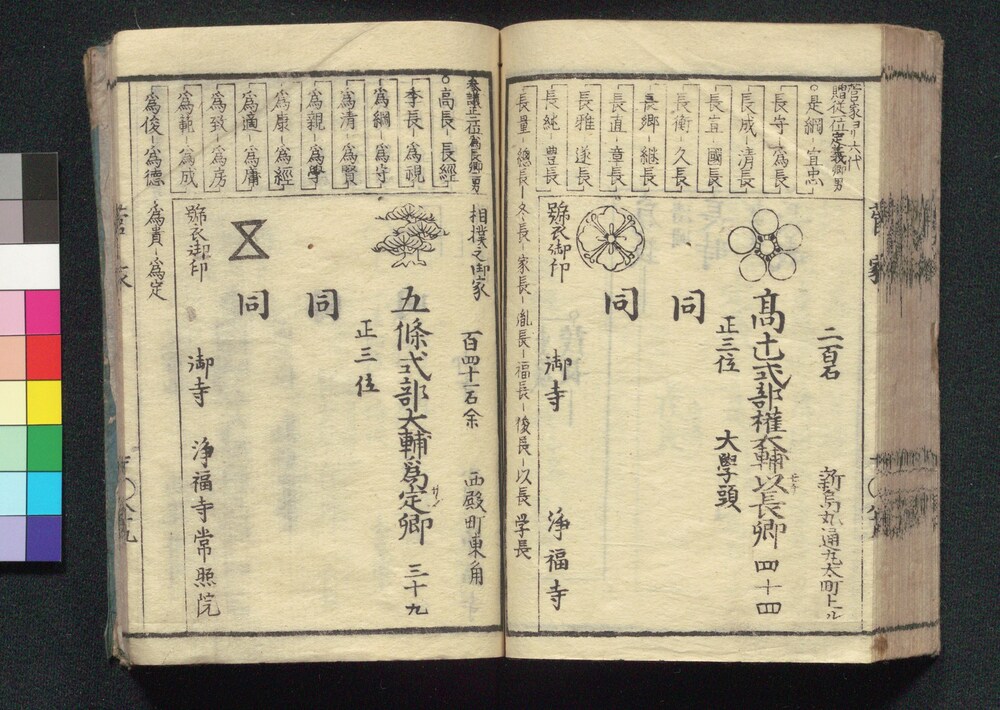 菅家ヨリ六代
贈従一位定義卿男
○是綱 宜忠
長守 為長
長成 清長
長宣 國長
長衡 久長
長郷 継長
長直 章長
長雅 遂長
長純 豊長
長量 總長 冬長 家長 胤長 福長 俊長 以長 学長
二百石
新烏丸通丸太町上ル
髙辻式部権大輔以長卿 四十四
モチ
正三位
大學頭
同
同
號衣御印
御寺
浄福寺
菅家
参議正二位為長卿男
○高長 長經
季長 為視
為綱 為守
為清 為賢
為親 為學
為康 為經
為適 為庸
為致 為房
為範 為成
為俊 為徳
為貴 為定
相撲之御家
百四十一石余
西殿町東角
五條式部大輔為定卿 三十九
サダ
正三位
同
同
號衣御印
御寺
浄福寺常照院